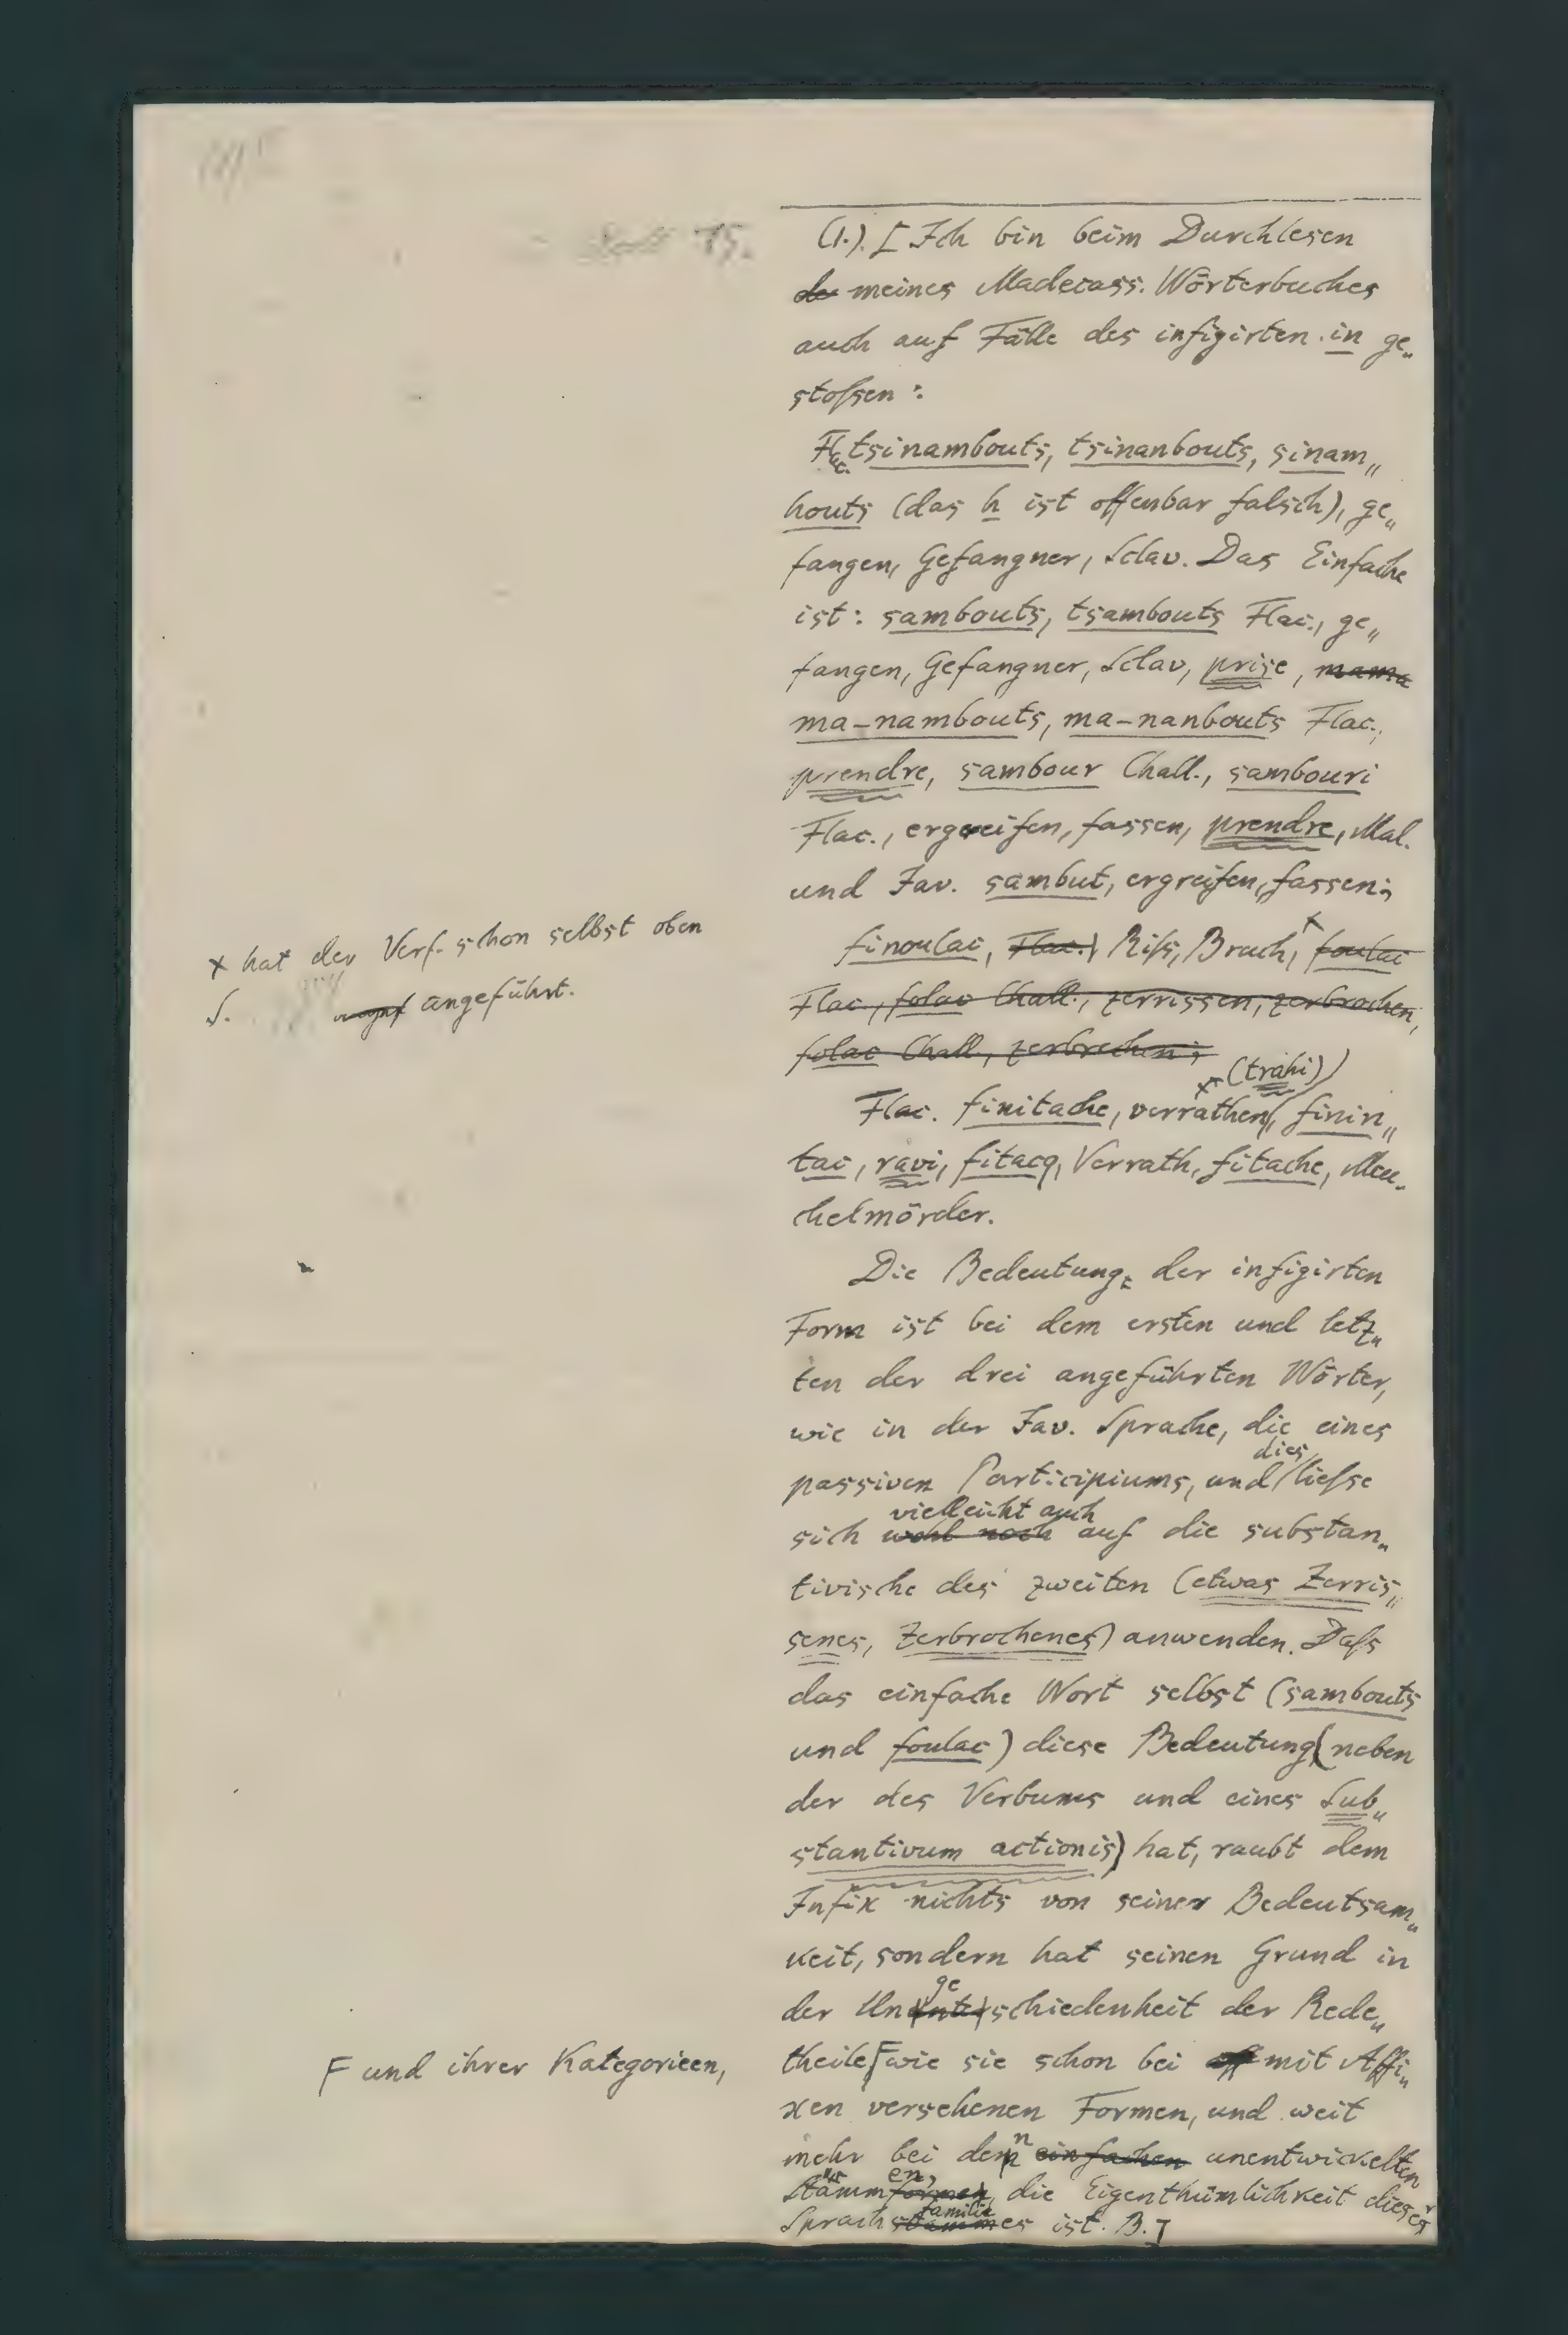 15.
(1.). [Ich bin beim Durchlesen
de meines Madecass. Wörterbuches
auch auf Fälle des infigirten in ge„
stoſsen:
Flac. tsinambouts, tsinanbouts, sinam„
houts (das h ist offenbar falsch), ge„
fangen, Gefangner, Sclav. Das Einfache
ist: sambouts, tsambouts Flac., ge„
fangen, Gefangner, Sclav, prise, mama
ma-nambouts, ma-nanbouts Flac.,
prendre, sambour Chall., sambouri
Flac., ergreifen, fassen, prendre, Mal.
und Jav. sambut, ergreifen, fassen;
x hat der Verf. schon selbst oben
S. angeführt.
finoulac, Flac.) Riſs, Bruch, x foulac
Flac., folac Chall., zerrissen, zerbrochen,
folac Chall., zerbrechen;
x (trahi)
Flac. finitache, verrathen, finin„
tac, ravi, fitacq, Verrath, fitache, Meu„
chelmörder.
Die Bedeutung der infigirten
Form ist bei dem ersten und letz„
ten der drei angeführten Wörter,
wie in der Jav. Sprache, die eines
dies
passiven Participiums, und lieſse
vielleicht auch
sich wohl noch auf die substan„
tivische des zweiten (etwas Zerris„
senes, Zerbrochenes) anwenden. Daſs
das einfache Wort selbst (sambouts
und foulac) diese Bedeutung (neben
der des Verbums und eines Sub„
stantivum actionis) hat, raubt dem
Infix nichts von seiner Bedeutsam„
keit, sondern hat seinen Grund in
ge
der Ununterschiedenheit der Rede„
F und ihrer Kategorieen,
theile F wie sie schon bei mit Affi„
xen versehenen Formen, und weit
n
mehr bei dem einfachen unentwickelten
en,
Stämmformen, die Eigenthümlichkeit dieser
familie
Sprachstammes ist. B.]